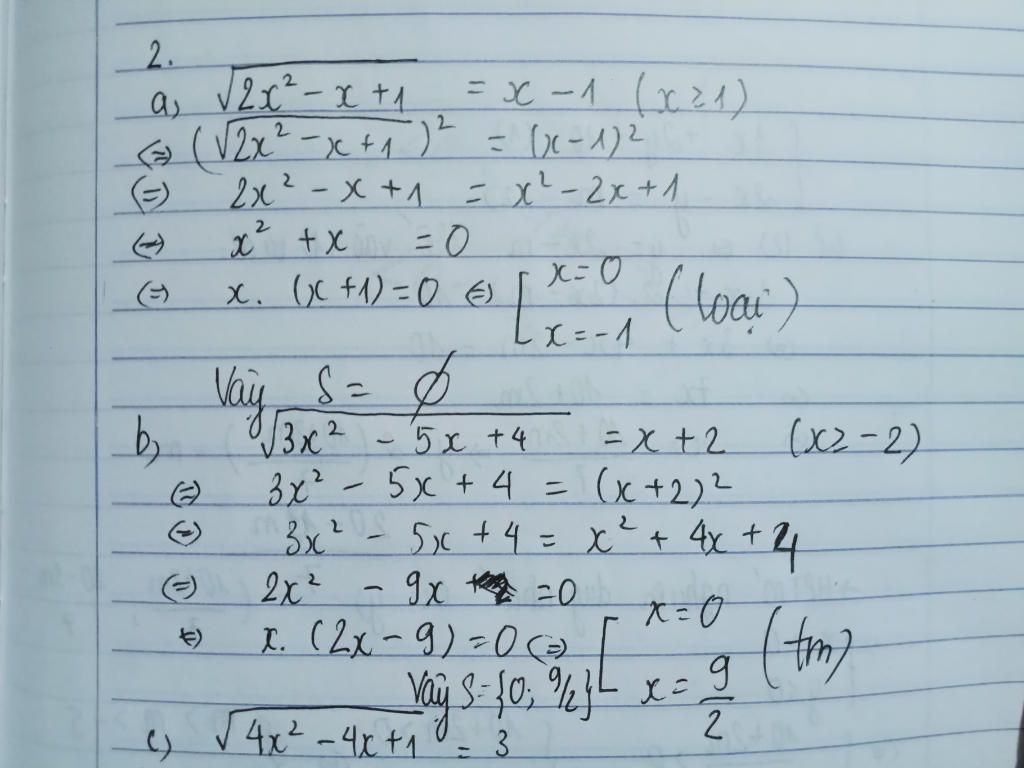 2.
a, √(2x² - x + 1) = x - 1 (x ≥ 1)
⇔ (√(2x² - x + 1))² = (x - 1)²
⇔ 2x² - x + 1 = x² - 2x + 1
⇔ x² + x = 0
⇔ x. (x + 1) = 0 ⇔ [ x = 0
x = -1 (loại)
Vậy S = ∅
b, √(3x² - 5x + 4) = x + 2 (x ≥ -2)
⇔ 3x² - 5x + 4 = (x + 2)²
⇔ 3x² - 5x + 4 = x² + 4x + 4
⇔ 2x² - 9x = 0
⇔ x. (2x - 9) = 0 ⇔ [ x = 0
x = 9/2 (tm)
Vậy S = {0; 9/2}
c, √(4x² - 4x + 1) = 3